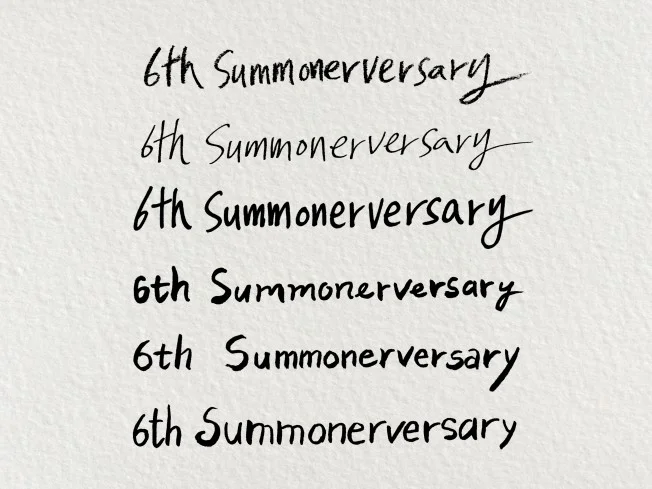 6th Summonerversary
6th Summonerversary
6th Summonerversary
6th Summonerversary
6th Summonerversary
6th Summonerversary